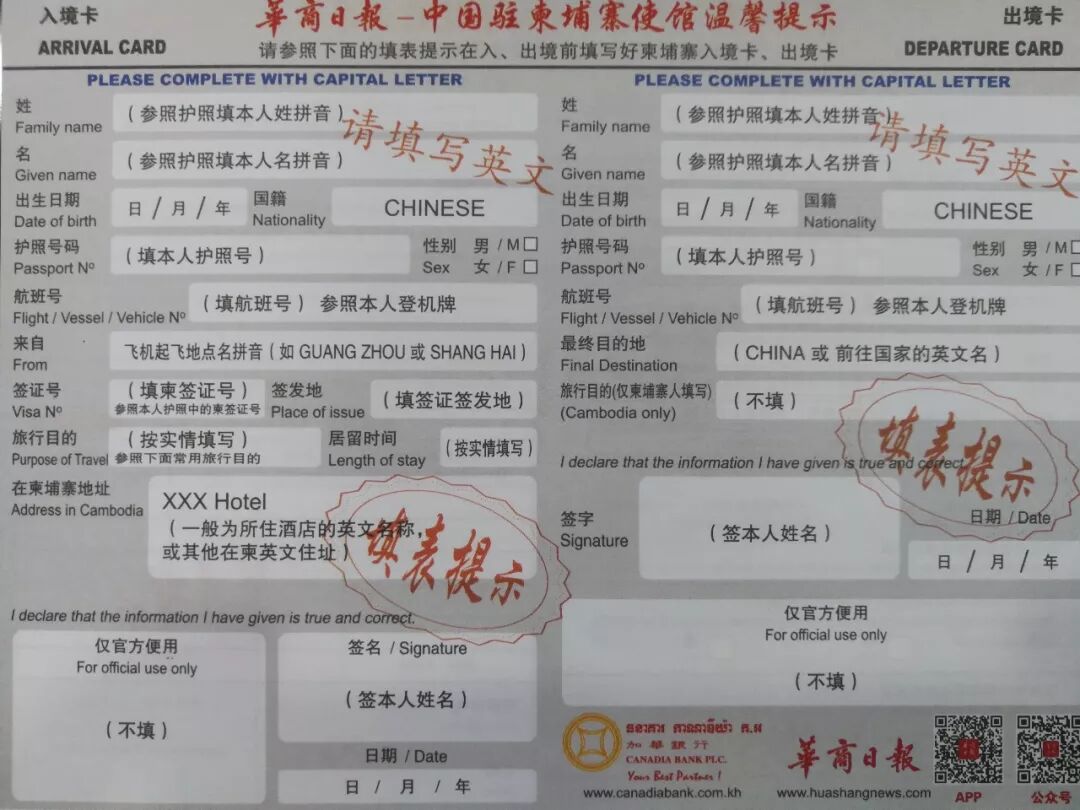 入境卡
ARRIVAL CARD
華商日報-中国驻柬埔寨使馆温馨提示
请参照下面的填表提示在入、出境前填写好柬埔寨入境卡、出境卡
出境卡
DEPARTURE CARD
PLEASE COMPLETE WITH CAPITAL LETTER
姓
Family name
(参照护照填本人姓拼音)
请填写英文
名
Given name
(参照护照填本人名拼音)
出生日期
Date of birth
日 / 月 / 年
国籍
Nationality
CHINESE
护照号码
Passport Nº
(填本人护照号)
性别 男 / M
Sex 女 / F
航班号
Flight / Vessel / Vehicle Nº
(填航班号) 参照本人登机牌
来自
From
飞机起飞地点名拼音(如 GUANG ZHOU 或 SHANG HAI)
签证号
Visa Nº
(填柬签证号)
参照本人护照中的柬签证号
签发地
Place of issue
(填签证签发地)
旅行目的
Purpose of Travel
(按实情填写)
参照下面常用旅行目的
居留时间
Length of stay
(按实情填写)
在柬埔寨地址
Address in Cambodia
XXX Hotel
(一般为所住酒店的英文名称,
或其他在柬英文住址)
填表提示
I declare that the information I have given is true and correct.
仅官方便用
For official use only
(不填)
签名 / Signature
(签本人姓名)
日期 / Date
日 / 月 / 年
PLEASE COMPLETE WITH CAPITAL LETTER
姓
Family name
(参照护照填本人姓拼音)
请填写英文
名
Given name
(参照护照填本人名拼音)
出生日期
Date of birth
日 / 月 / 年
国籍
Nationality
CHINESE
护照号码
Passport Nº
(填本人护照号)
性别 男 / M
Sex 女 / F
航班号
Flight / Vessel / Vehicle Nº
(填航班号) 参照本人登机牌
最终目的地
Final Destination
(CHINA 或 前往国家的英文名)
旅行目的(仅柬埔寨人填写)
(Cambodia only)
(不填)
填表提示
I declare that the information I have given is true and correct.
签字
Signature
(签本人姓名)
日期 / Date
日 / 月 / 年
仅官方便用
For official use only
(不填)
ធនាគារ កាណាឌីយ៉ា ភ.អ
加華銀行
CANADIA BANK PLC.
Your Best Partner !
www.canadiabank.com.kh
華商日報
www.huashangnews.com
APP
公众号